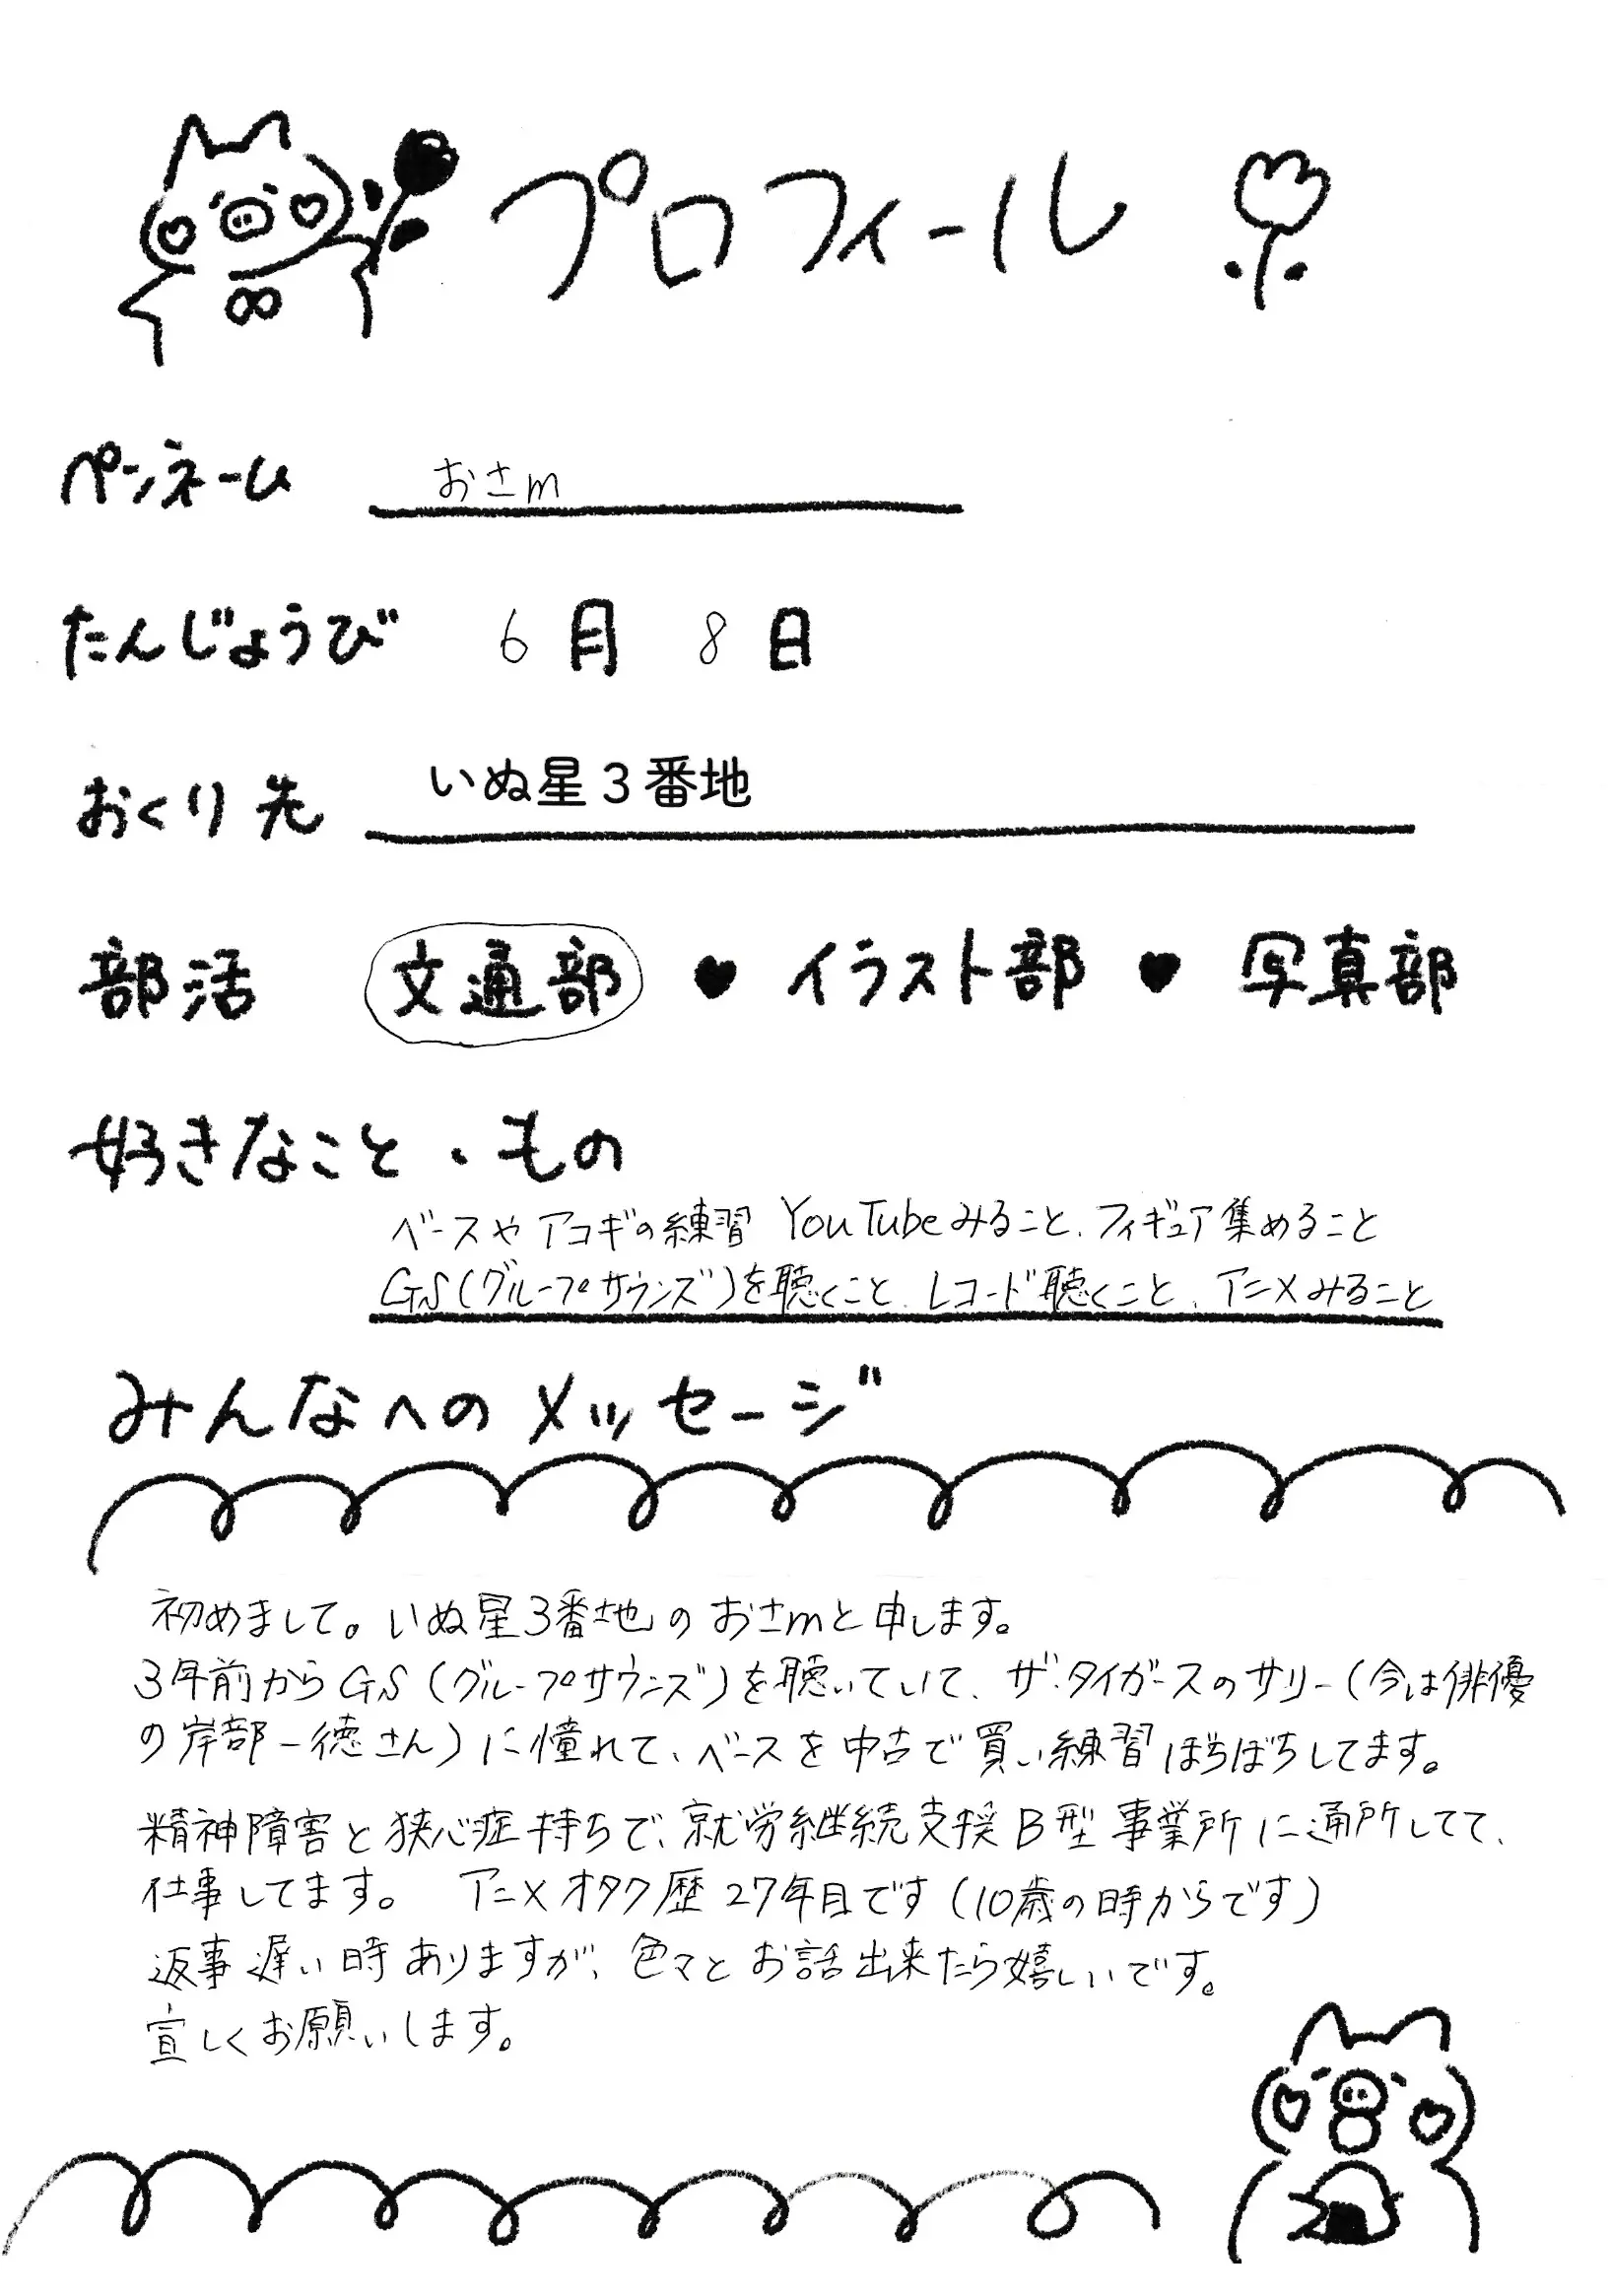 プロフィール
ペンネーム おさm
たんじょうび 6月 8日
おくり先 いぬ星3番地
部活 文通部 ♥ イラスト部 ♥ 写真部
好きなこと・もの
ベースやアコギの練習 YouTubeみること、フィギュア集めること
GS(グループサウンズ)を聴くこと、レコード聴くこと、アニメみること
みんなへのメッセージ
初めまして。いぬ星3番地のおさmと申します。
3年前からGS(グループサウンズ)を聴いていて、ザ・タイガースのサリー(今は俳優
の岸部一徳さん)に憧れて、ベースを中古で買い練習ぼちぼちしてます。
精神障害と狭心症持ちで、就労継続支援B型事業所に通所してて、
仕事してます。 アニメオタク歴27年目です(10歳の時からです)
返事遅い時ありますが、色々とお話出来たら嬉しいです。
宜しくお願いします。